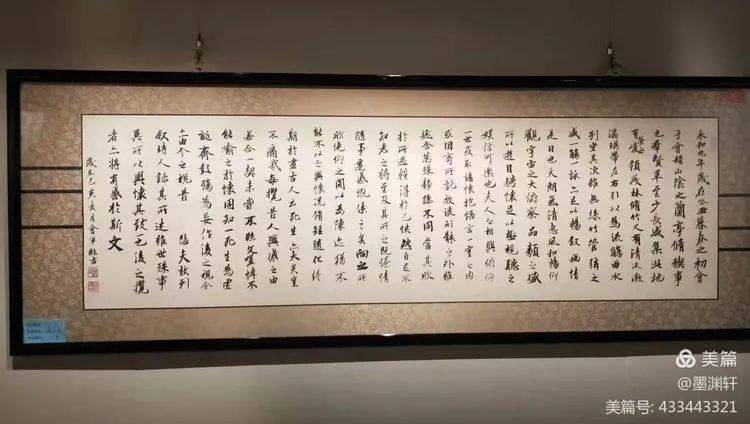 永和九年歲在癸丑暮春之初會
于會稽山陰之蘭亭脩稧事
也羣賢畢至少長咸集此地
有崇山峻領茂林脩竹又有清流激
湍暎帶左右引以為流觴曲水
列坐其次雖無絲竹管弦之
盛一觴一詠亦足以暢叙幽情
是日也天朗氣清惠風和暢仰
觀宇宙之大俯察品類之盛
所以遊目騁懷足以極視聽之
娛信可樂也夫人之相與俯仰
一世或取諸懷抱悟言一室之內
或因寄所託放浪形骸之外雖
趣舍萬殊靜躁不同當其欣
於所遇蹔得於己怏然自足不
知老之將至及其所之既惓情
隨事遷感慨係之矣向之所
欣俛仰之間以為陳迹猶不
能不以之興懷況脩短隨化終
期於盡古人云死生亦大矣豈
不痛哉每攬昔人興感之由
若合一契未嘗不臨文嗟悼不
能喻之於懷固知一死生為虛
誕齊彭殤為妄作後之視今
亦由今之視昔 悲夫故列
叙時人錄其所述雖世殊事
異所以興懷其致一也後之攬
者亦將有感於斯文
歲在己亥
美篇
@墨渊轩
美篇号: 433443321